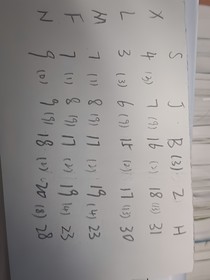 S J B(3) Z H
X 4 (3) 7 (9) 16 (2) 18 (13) 31
L 3 (3) 6 (9) 15 (2) 17 (13) 30
M 7 (1) 8 (9) 17 (2) 19 (4) 23
F 7 (1) 8 (9) 17 (2) 19 (4) 23
N 9 (0) 9 (9) 18 (2) 20 (8) 28